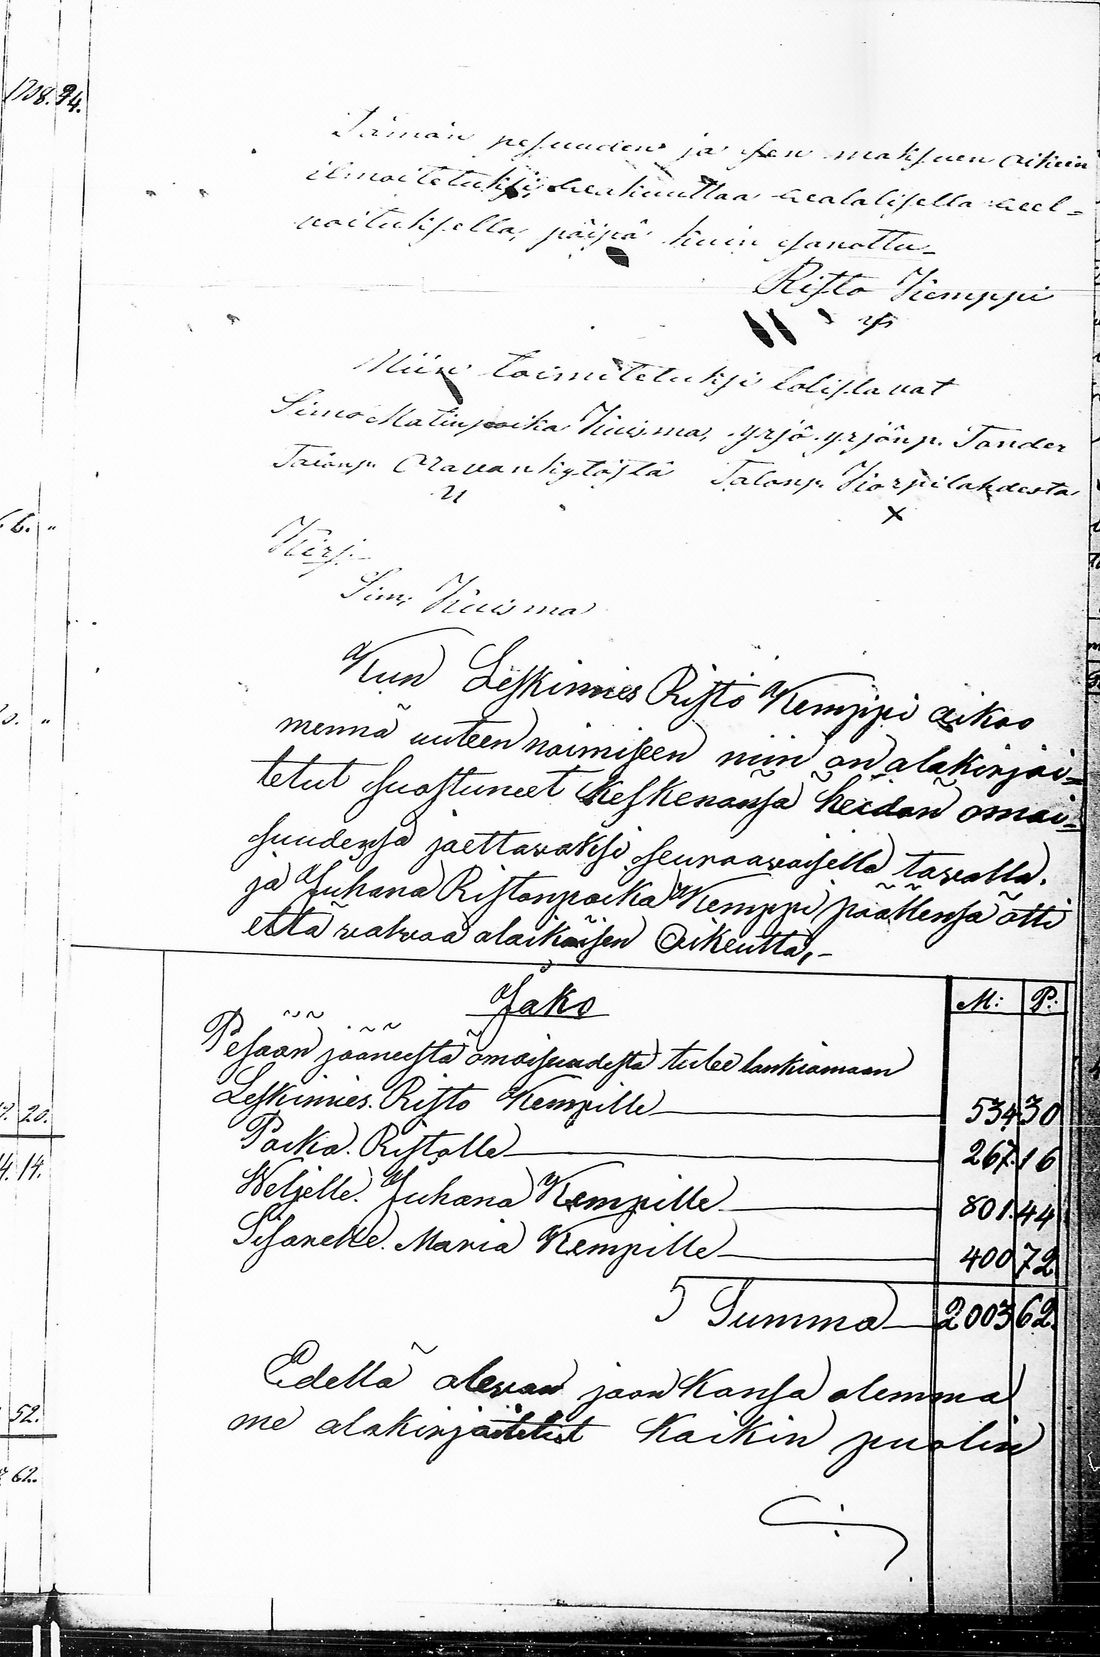 1708.94.
Tämän pesuuden ja sen maksuen oikein
ilmoitetuksi, wakuuttaa walalisella weel=
noituksella, päipä kuin sanottu
Risto Kemppi
Niin toimitetuksi todistavat
Simo Matinpoika Kuisma, Yrjö Yrjönp. Tander
Talonp. Oravankytöstä Talonp. Korpilahdesta
X
Kirj.
Simo Kuisma
Kun Leskimies Risto Kemppi aikoo
mennä uuteen naimiseen niin on alakirjoi=
tetut suostuneet keskenänsä heidän omai=
suudensa jaettavaksi seuraavaisella tavalla.
ja Juhana Ristonpoika Kemppi päällensä otti
että valvoa alaikäisen Oikeutta,-
Jako
M: P:
Pesään jääneestä omaisuudesta tulee lankiamaan
Leskimies. Risto Kempille 534 30
Poika. Ristolle 267. 16
Weljelle. Juhana Kempille 801. 44
Sisarelle. Maria Kempille 400 72
Summa 2003 62.
Edellä olevan jaon kansa olemma
me alakirjoitetut kaikin puolin
6. "
20.
14.
52.
62.